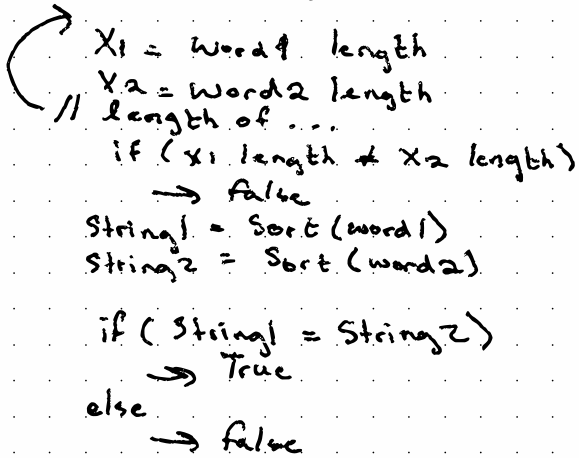 X1 = word1 length
X2 = word2 length
// length of ...
if (x1 length ≠ x2 length)
→ false
String1 = Sort (word1)
String2 = Sort (word2)
if ( String1 = String2 )
→ True
else
→ false